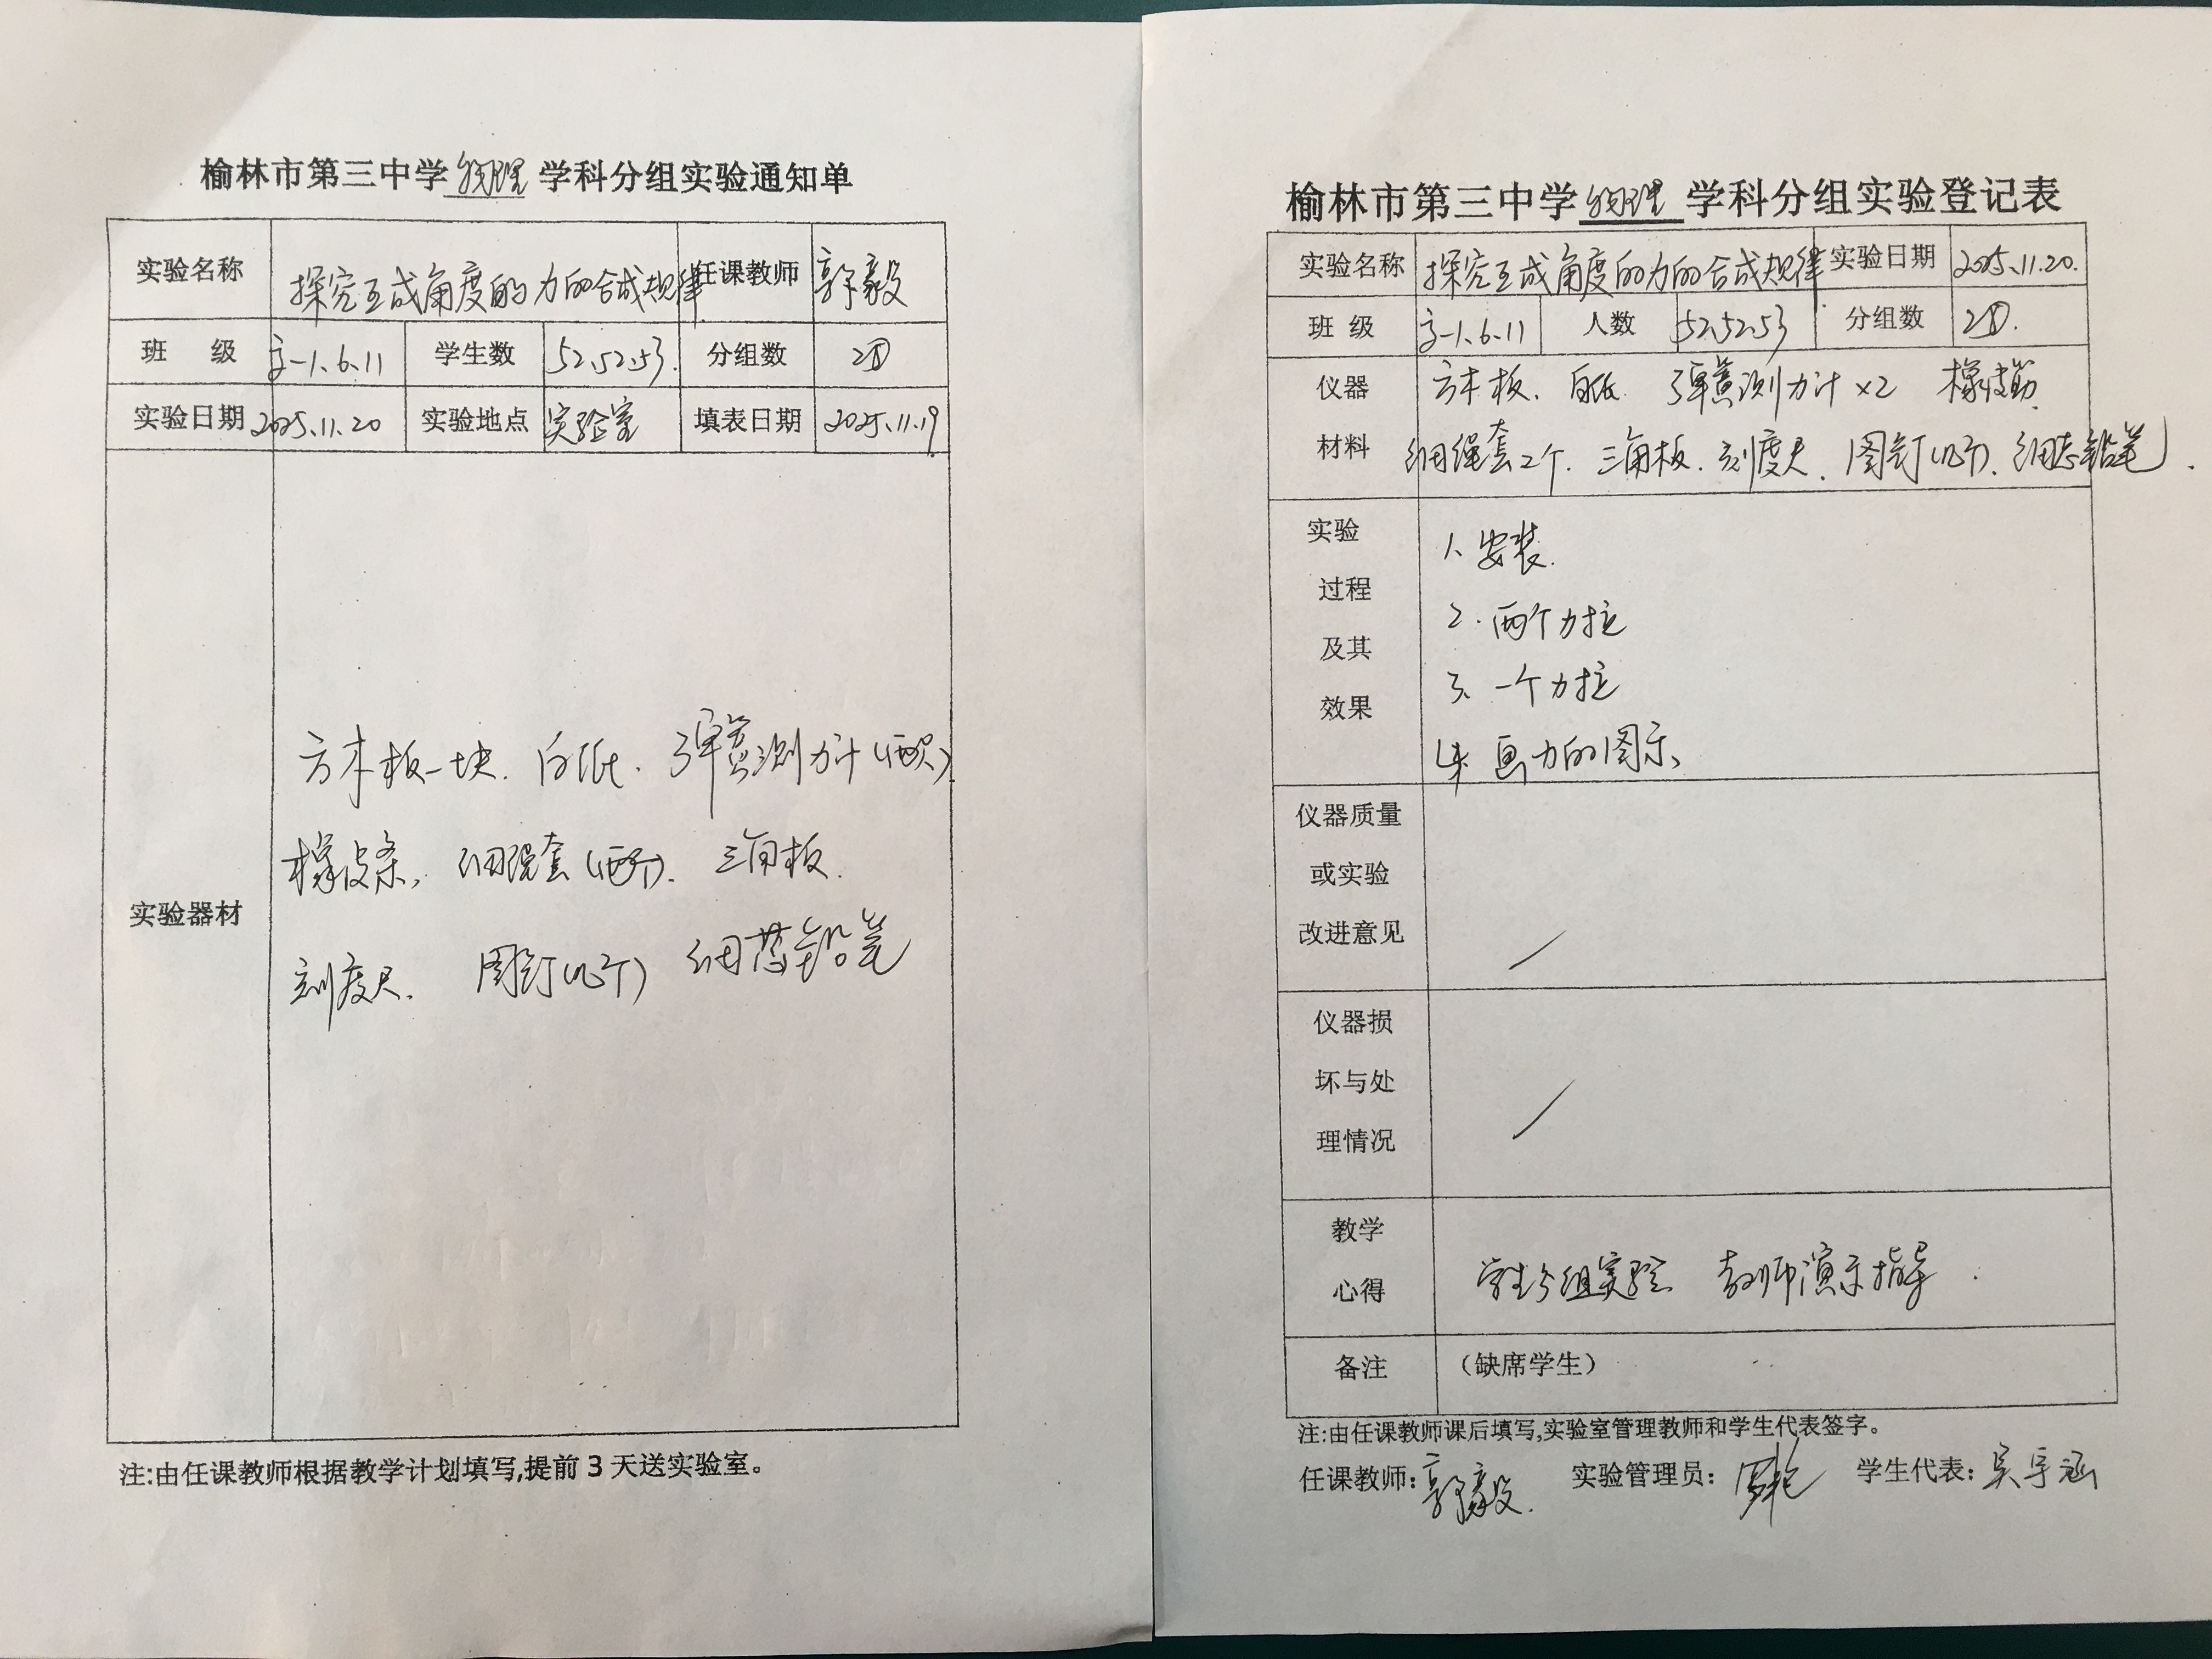 榆林市第三中学 物理 学科分组实验通知单
实验名称 探究互成角度的力的合成规律 任课教师 郭毅
班 级 高一1、6、11 学生数 52、52、53 分组数
实验日期 2025.11.20 实验地点 实验室 填表日期 2025.11.19
实验器材
方木板一块、白纸、弹簧测力计(两只)
橡皮条、细绳套(两个)、三角板、
刻度尺、图钉(几个) 细芯铅笔
注:由任课教师根据教学计划填写,提前 3 天送实验室。
榆林市第三中学 物理 学科分组实验登记表
实验名称 探究互成角度的力的合成规律 实验日期 2025.11.20.
班 级 高一1、6、11 人数 52、52、53 分组数
仪器 方木板、白纸、弹簧测力计×2 橡皮筋
材料 细绳套2个、三角板、刻度尺、图钉(几个)、细芯铅笔.
实验
过程
及其
效果
1、安装.
2. 两个力拉
3、一个力拉
4. 画力的图示、
仪器质量
或实验
改进意见
仪器损
坏与处
理情况
教学
心得
学生分组实验 教师演示指导.
备注 (缺席学生)
注:由任课教师课后填写,实验室管理教师和学生代表签字。
任课教师: 郭毅. 实验管理员: 学生代表: 吴宇涵